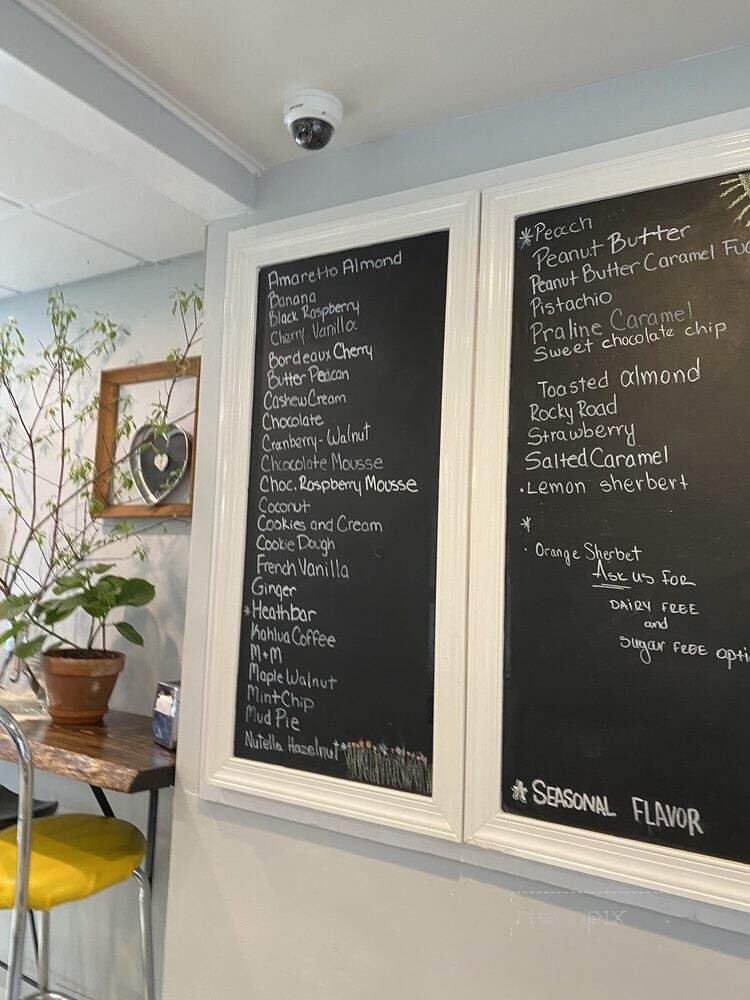 Amaretto Almond
Banana
Black Raspberry
Cherry Vanilla
Bordeaux Cherry
Butter Peacan
Cashew Cream
Chocolate
Cranberry-Walnut
Chocolate Mousse
Choc. Raspberry Mousse
Coconut
Cookies and Cream
Cookie Dough
French Vanilla
Ginger
*Heathbar
Kahlua Coffee
M+M
Maple Walnut
Mint Chip
Mud Pie
Nutella Hazelnut*
*Peach
Peanut Butter
Peanut Butter Caramel
Pistachio
Praline Caramel
Sweet chocolate chip
Toasted almond
Rocky Road
Strawberry
Salted Caramel
·Lemon sherbert
*
· Orange Sherbet
Ask us FOR
DAIRY FREE
and
Sugar FREE opti
* SEASONAL FLAVOR